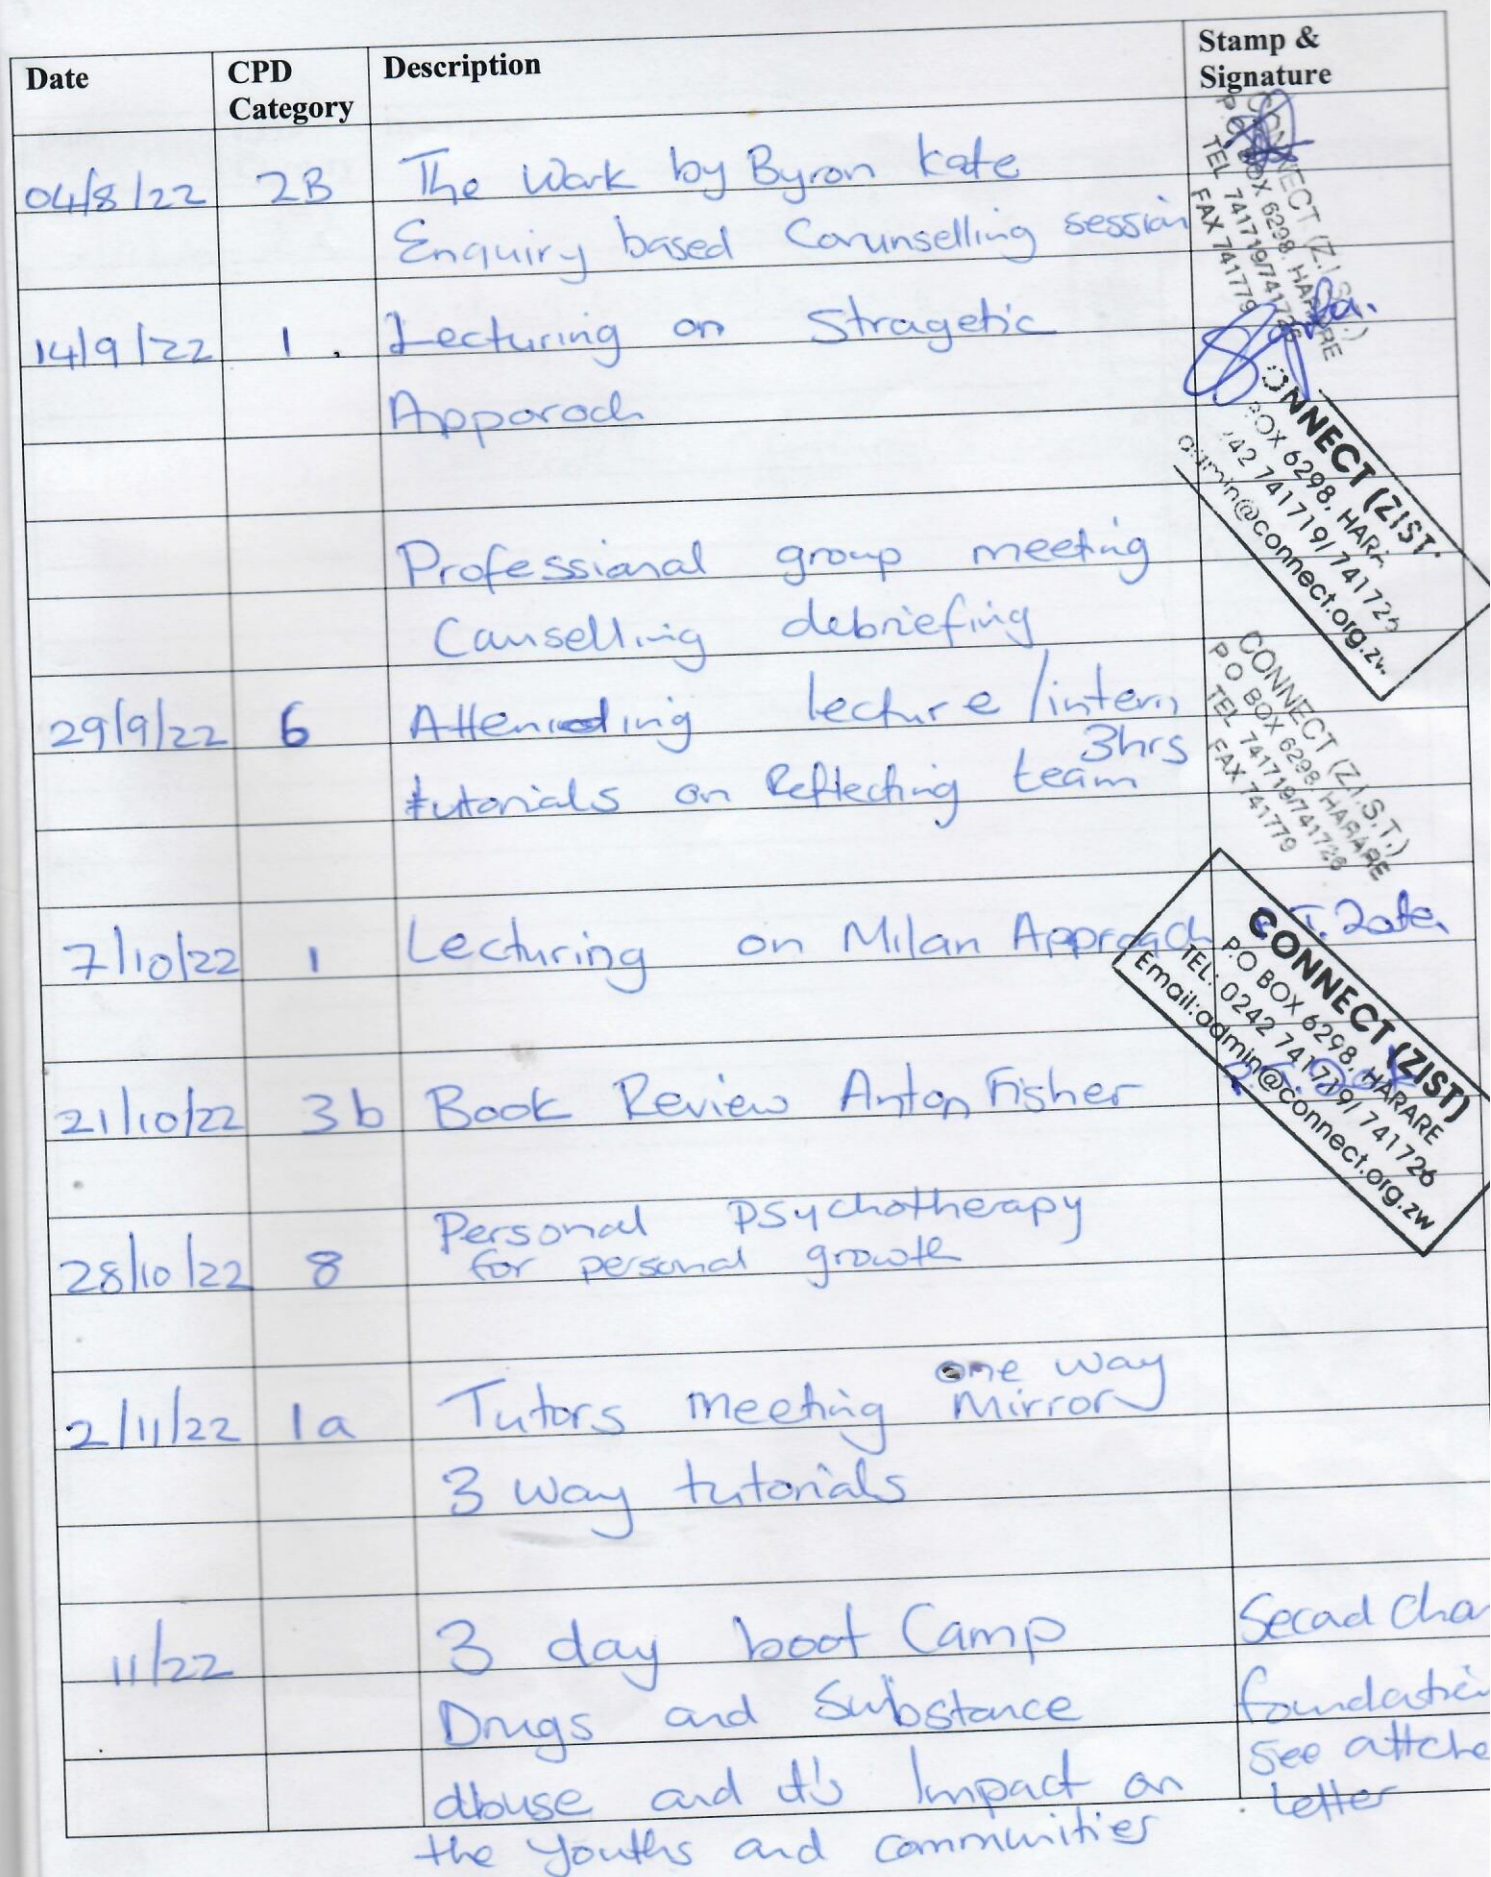 Date CPD Category Description Stamp & Signature
04/8/22 2B The Work by Byron Kate
Enquiry based Conunselling session
CONNECT (Z.I.S.T.)
P.O. BOX 6298, HARARE
TEL 741719/741726
FAX 741779
14/9/22 1. Lecturing on Stragetic
Apporoach
CONNECT (ZIST
BOX 6298, HARA
242 741719/ 741726
admin@connect.org.zw
Professional group meeting
Counselling debriefing
29/9/22 6 Attending lecture/intern
3hrs
tutorials on Reflecting team
CONNECT (Z.I.S.T.)
P.O BOX 6298, HARARE
TEL 741719/741726
FAX 741779
7/10/22 1 Lecturing on Milan Approach
CONNECT (ZIST)
P.O BOX 6298, HARARE
TEL: 0242 741719/ 741726
Email:admin@connect.org.zw
21/10/22 3b Book Review Anton Fisher
Personal Psychotherapy
28/10/22 8 for personal growth
one way
2/11/22 1a Tutors meeting Mirror
3 way tutorials
11/22 3 day boot Camp Secad Cha
Drugs and Substance foundation
abuse and it's Impact on See attche
the Youths and communities letter